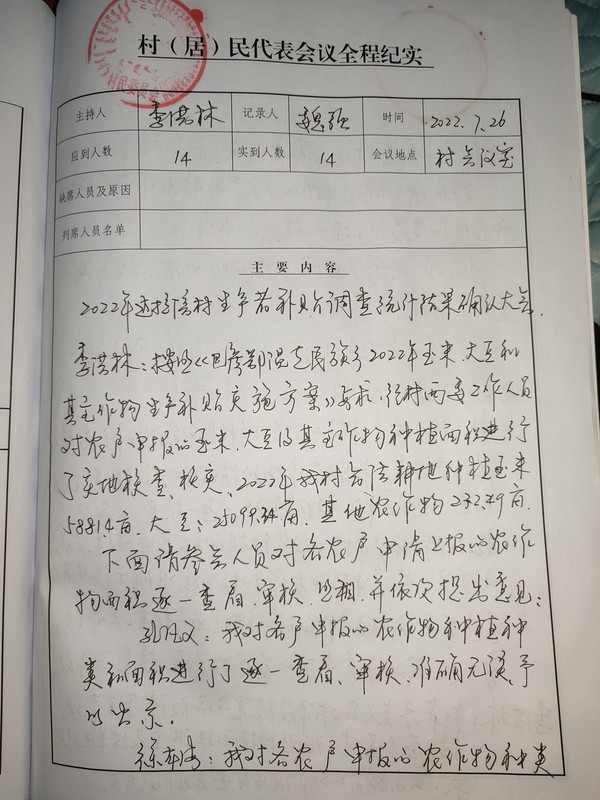 村（居）民代表会议全程纪实
主持人 李洪林 记录人 时间 2022.7.26
应到人数 14 实到人数 14 会议地点 村会议室
缺席人员及原因
列席人员名单
主要内容
2022年 村生产者补贴调查统计结果确认大会.
李洪林：按照《巴彦鄂温克民族乡2022年玉米、大豆和
其它作物生产补贴实施方案》要求，经村两委工作人员
对农户申报的玉米、大豆及其它作物种植面积进行
了实地核查、核实、2022年我村合法耕地种植玉米
5881.4亩. 大豆：25099.34亩. 其他农作物232.49亩.
下面请参会人员对各农户申请上报的农作
物面积逐一查看、审核、 并依次提出意见：
我对各户申报的农作物种植种
类和面积进行了逐一查看、审核、准确无误，予
以公示.
我对各农户申报的农作物种类